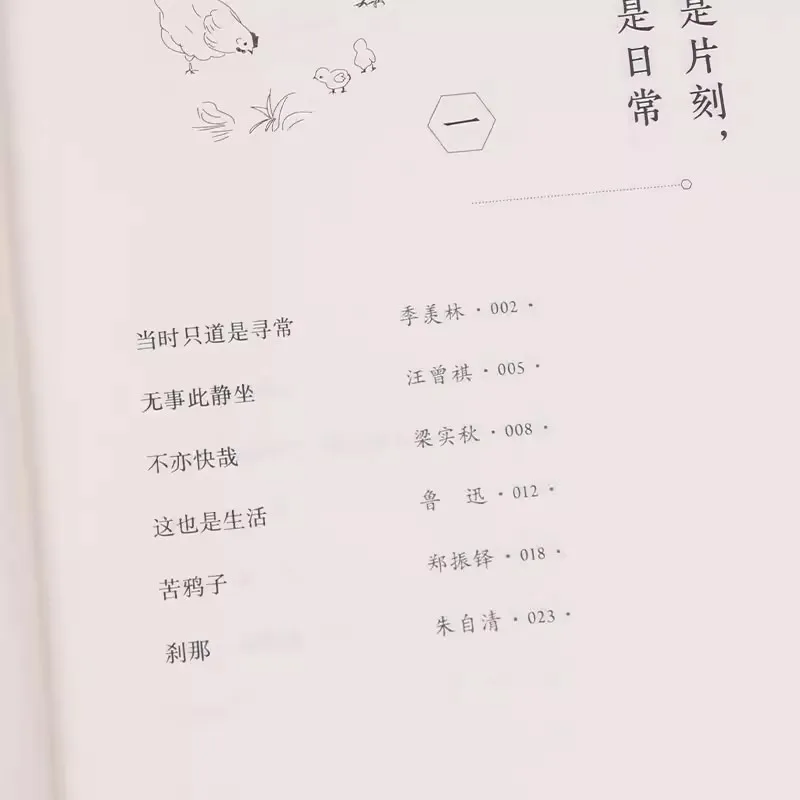 是片刻，
是日常
一
当时只道是寻常 季羡林·002·
无事此静坐 汪曾祺·005·
不亦快哉 梁实秋·008·
这也是生活 鲁　迅·012·
苦鸦子 郑振铎·018·
刹那 朱自清·023·